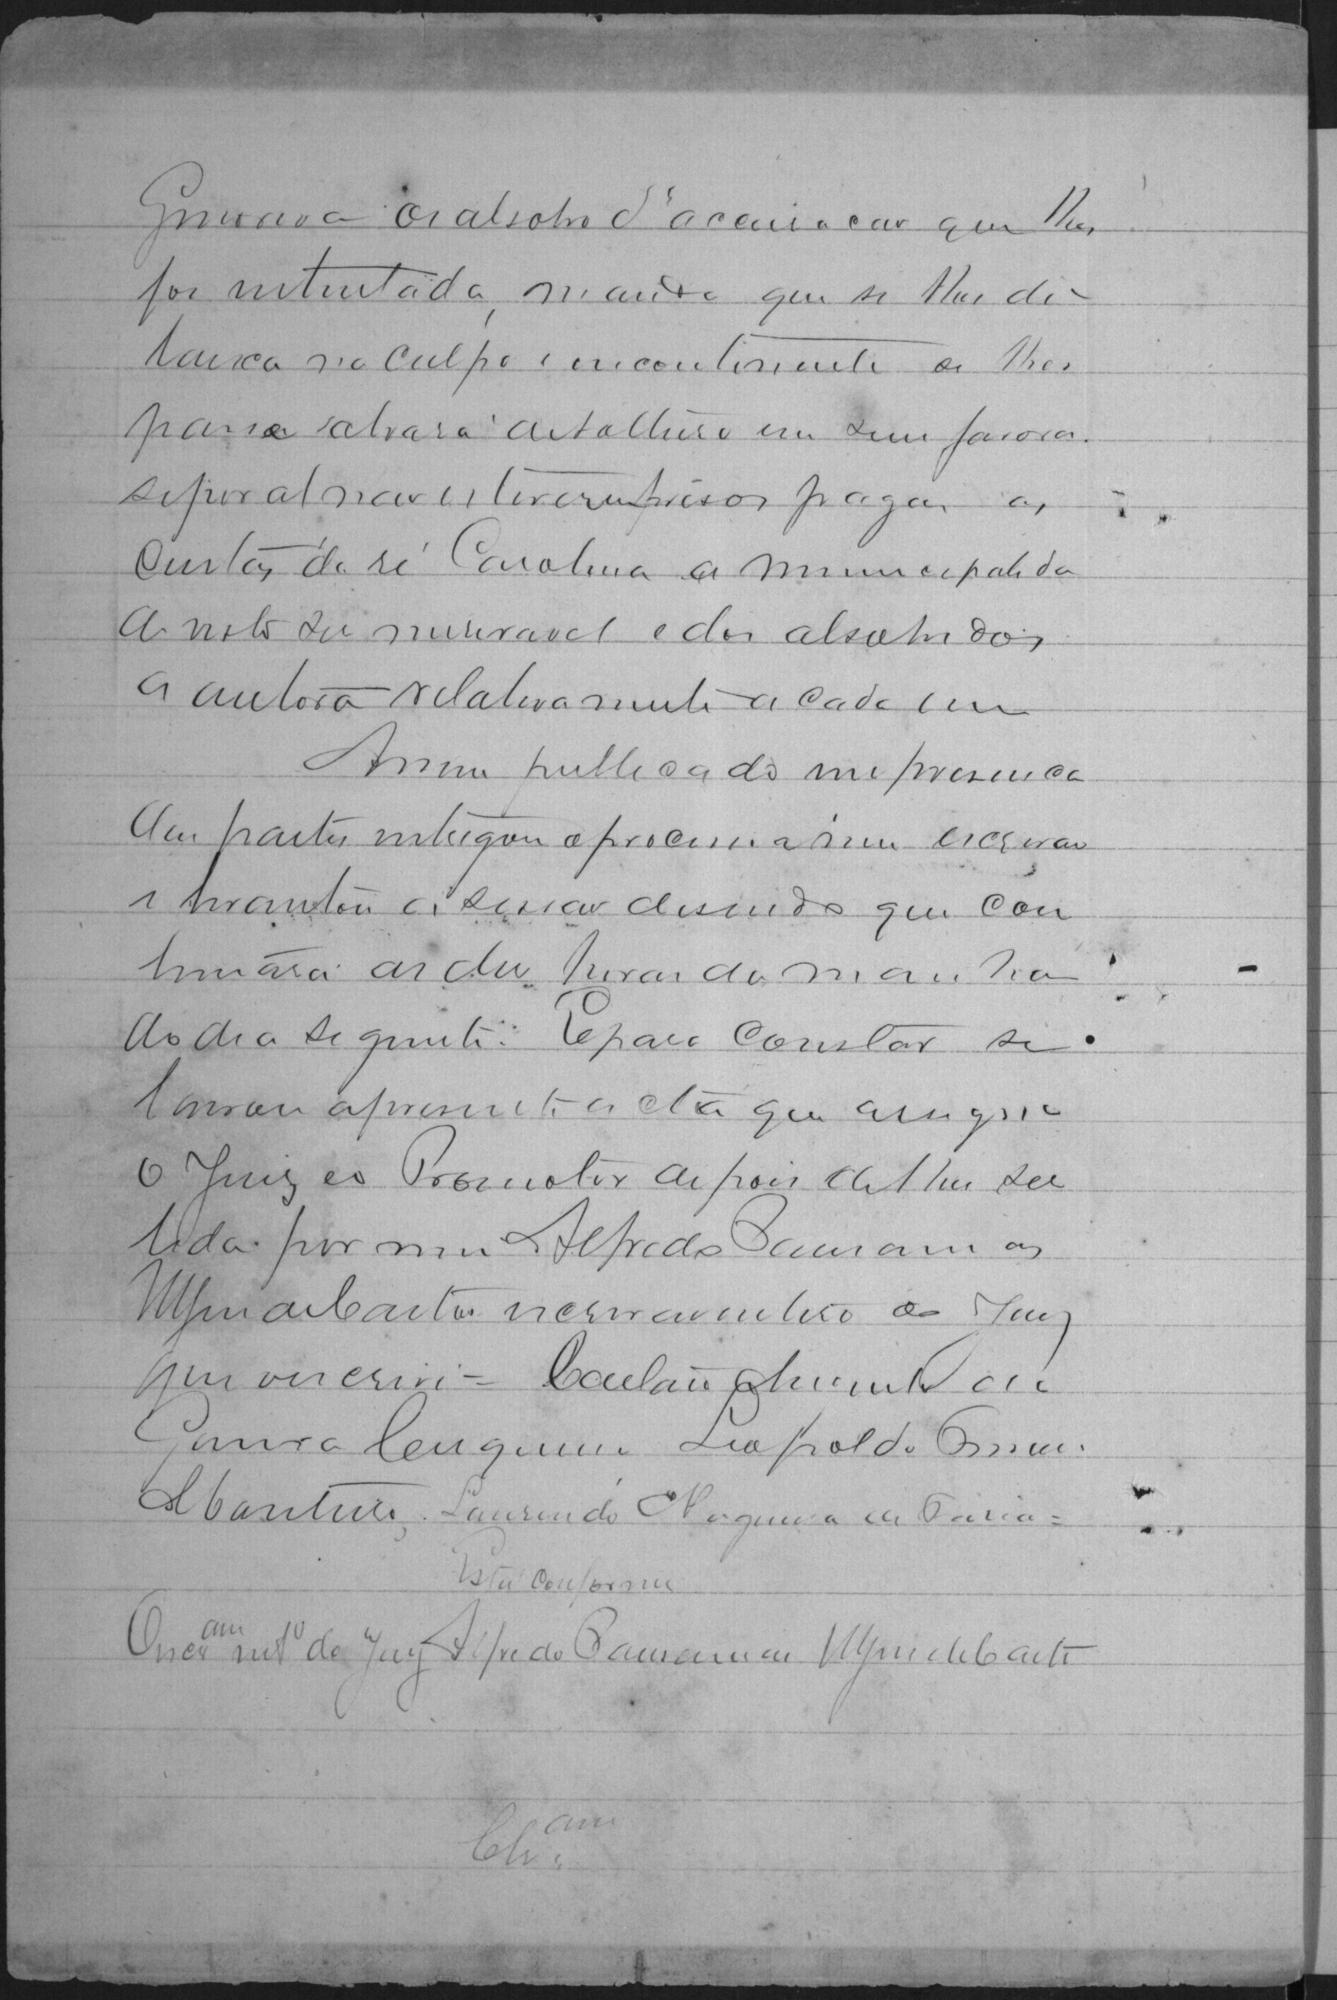 Genoveva os absolvo d'accusação que lhes
foi intentada, mando que se lhes dê
baixa na culpa e incontinente se lhes
passe alvará de soltura em seus favores
se por al não estiverem presos pagas as
custas da ré Carolina a municipalida
de visto ser miseravel e dos absolvidos
a autora relativamente a cada um
Assim publicado em presença
das partes entregou o processo a mim escrivão
e levantou a sessão dizendo que con
tinuára as dez horas da manhã
do dia seguinte: E para constar se
lavrou a presente acta que assigna
o Juiz e o Promotor depois de lhes ser
lida por mim Alfredo
escrivão interino do Jury
que o escrevi = Caetano de
Leopoldo
Monteiro, Laurindo Nogueira de Faria =
Está conforme
O escr.am int.o do Jury Alfredo
Cl.am